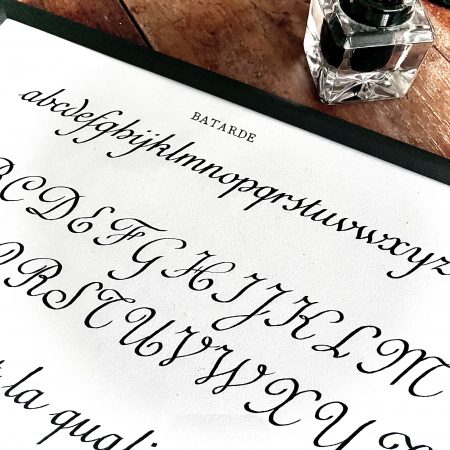 BATARDE
abcdefghijklmnopqrstuvwxyz
BCDEFGHIJKLM
QRSTUVWXYZ
la quali